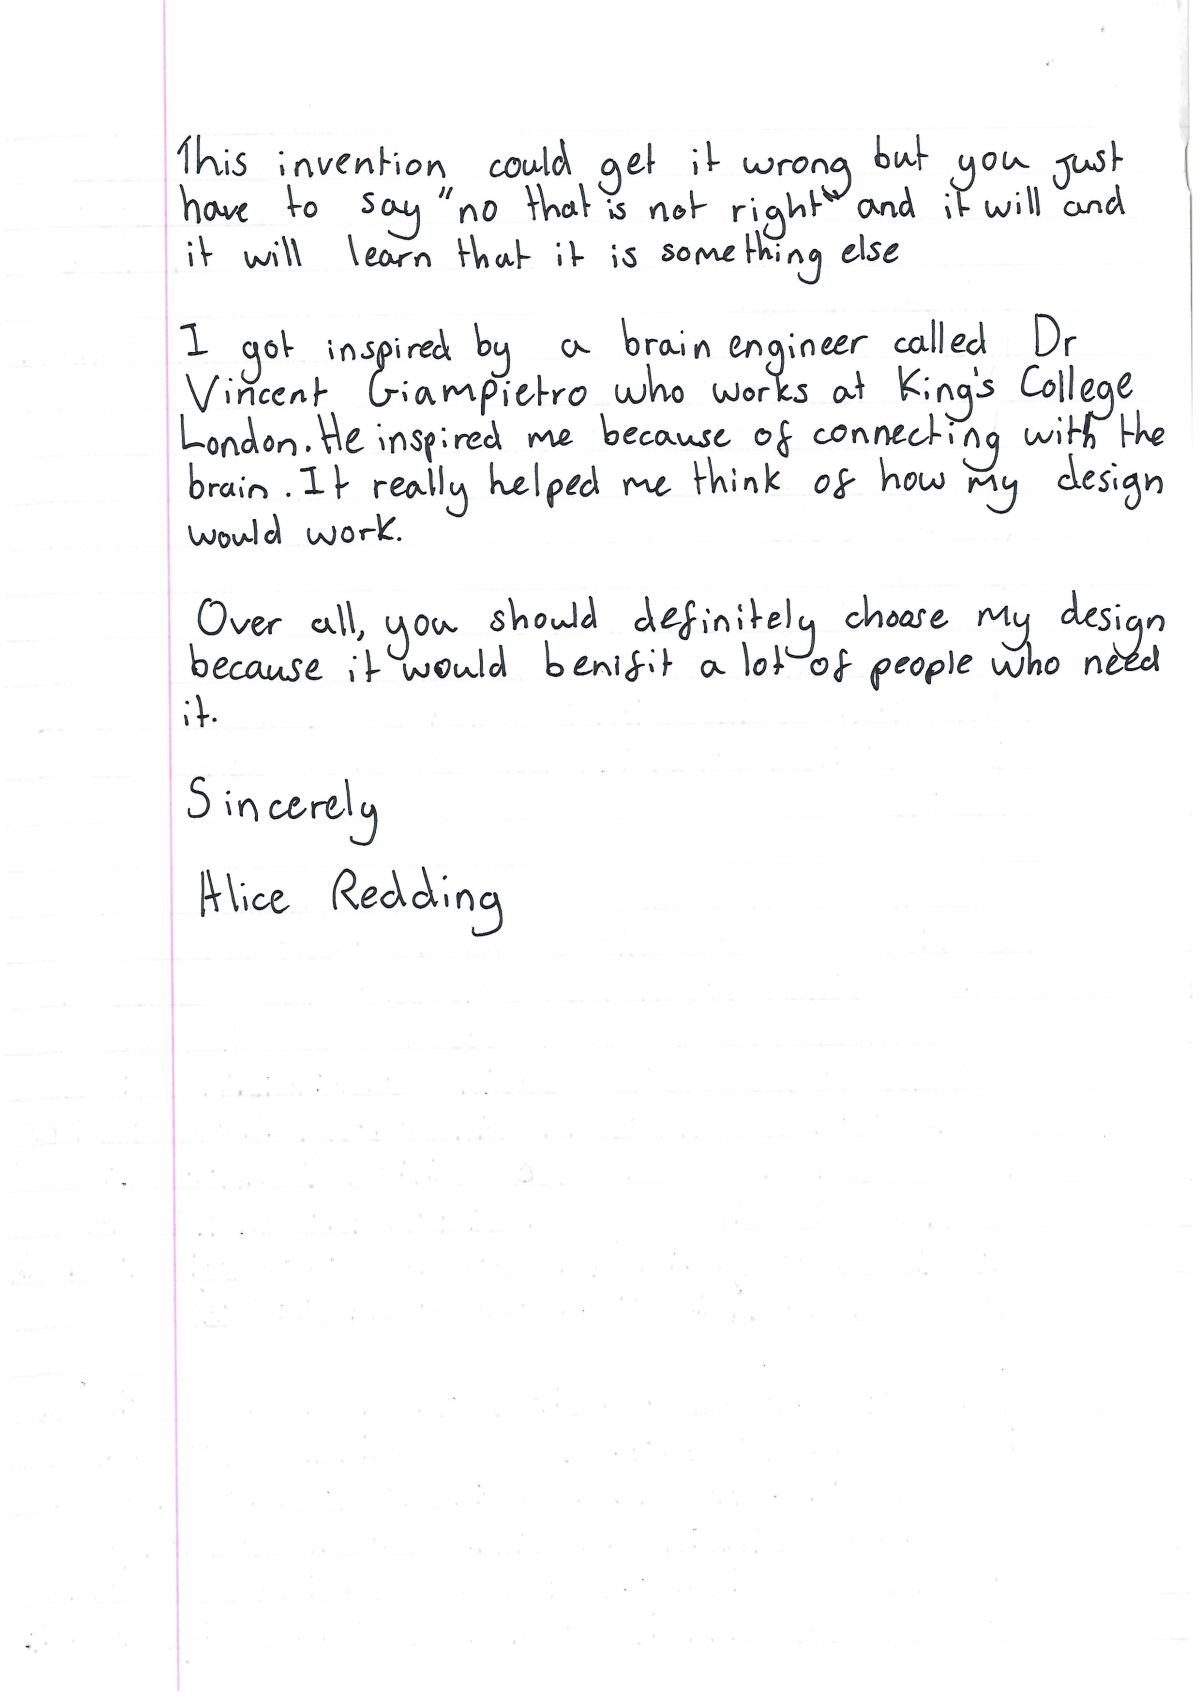 This invention could get it wrong but you just
have to say "no that is not right" and it will and
it will learn that it is something else
I got inspired by a brain engineer called Dr
Vincent Giampietro who works at King's College
London. He inspired me because of connecting with the
brain. It really helped me think of how my design
would work.
Over all, you should definitely choose my design
because it would benifit a lot of people who need
it.
Sincerely
Alice Redding